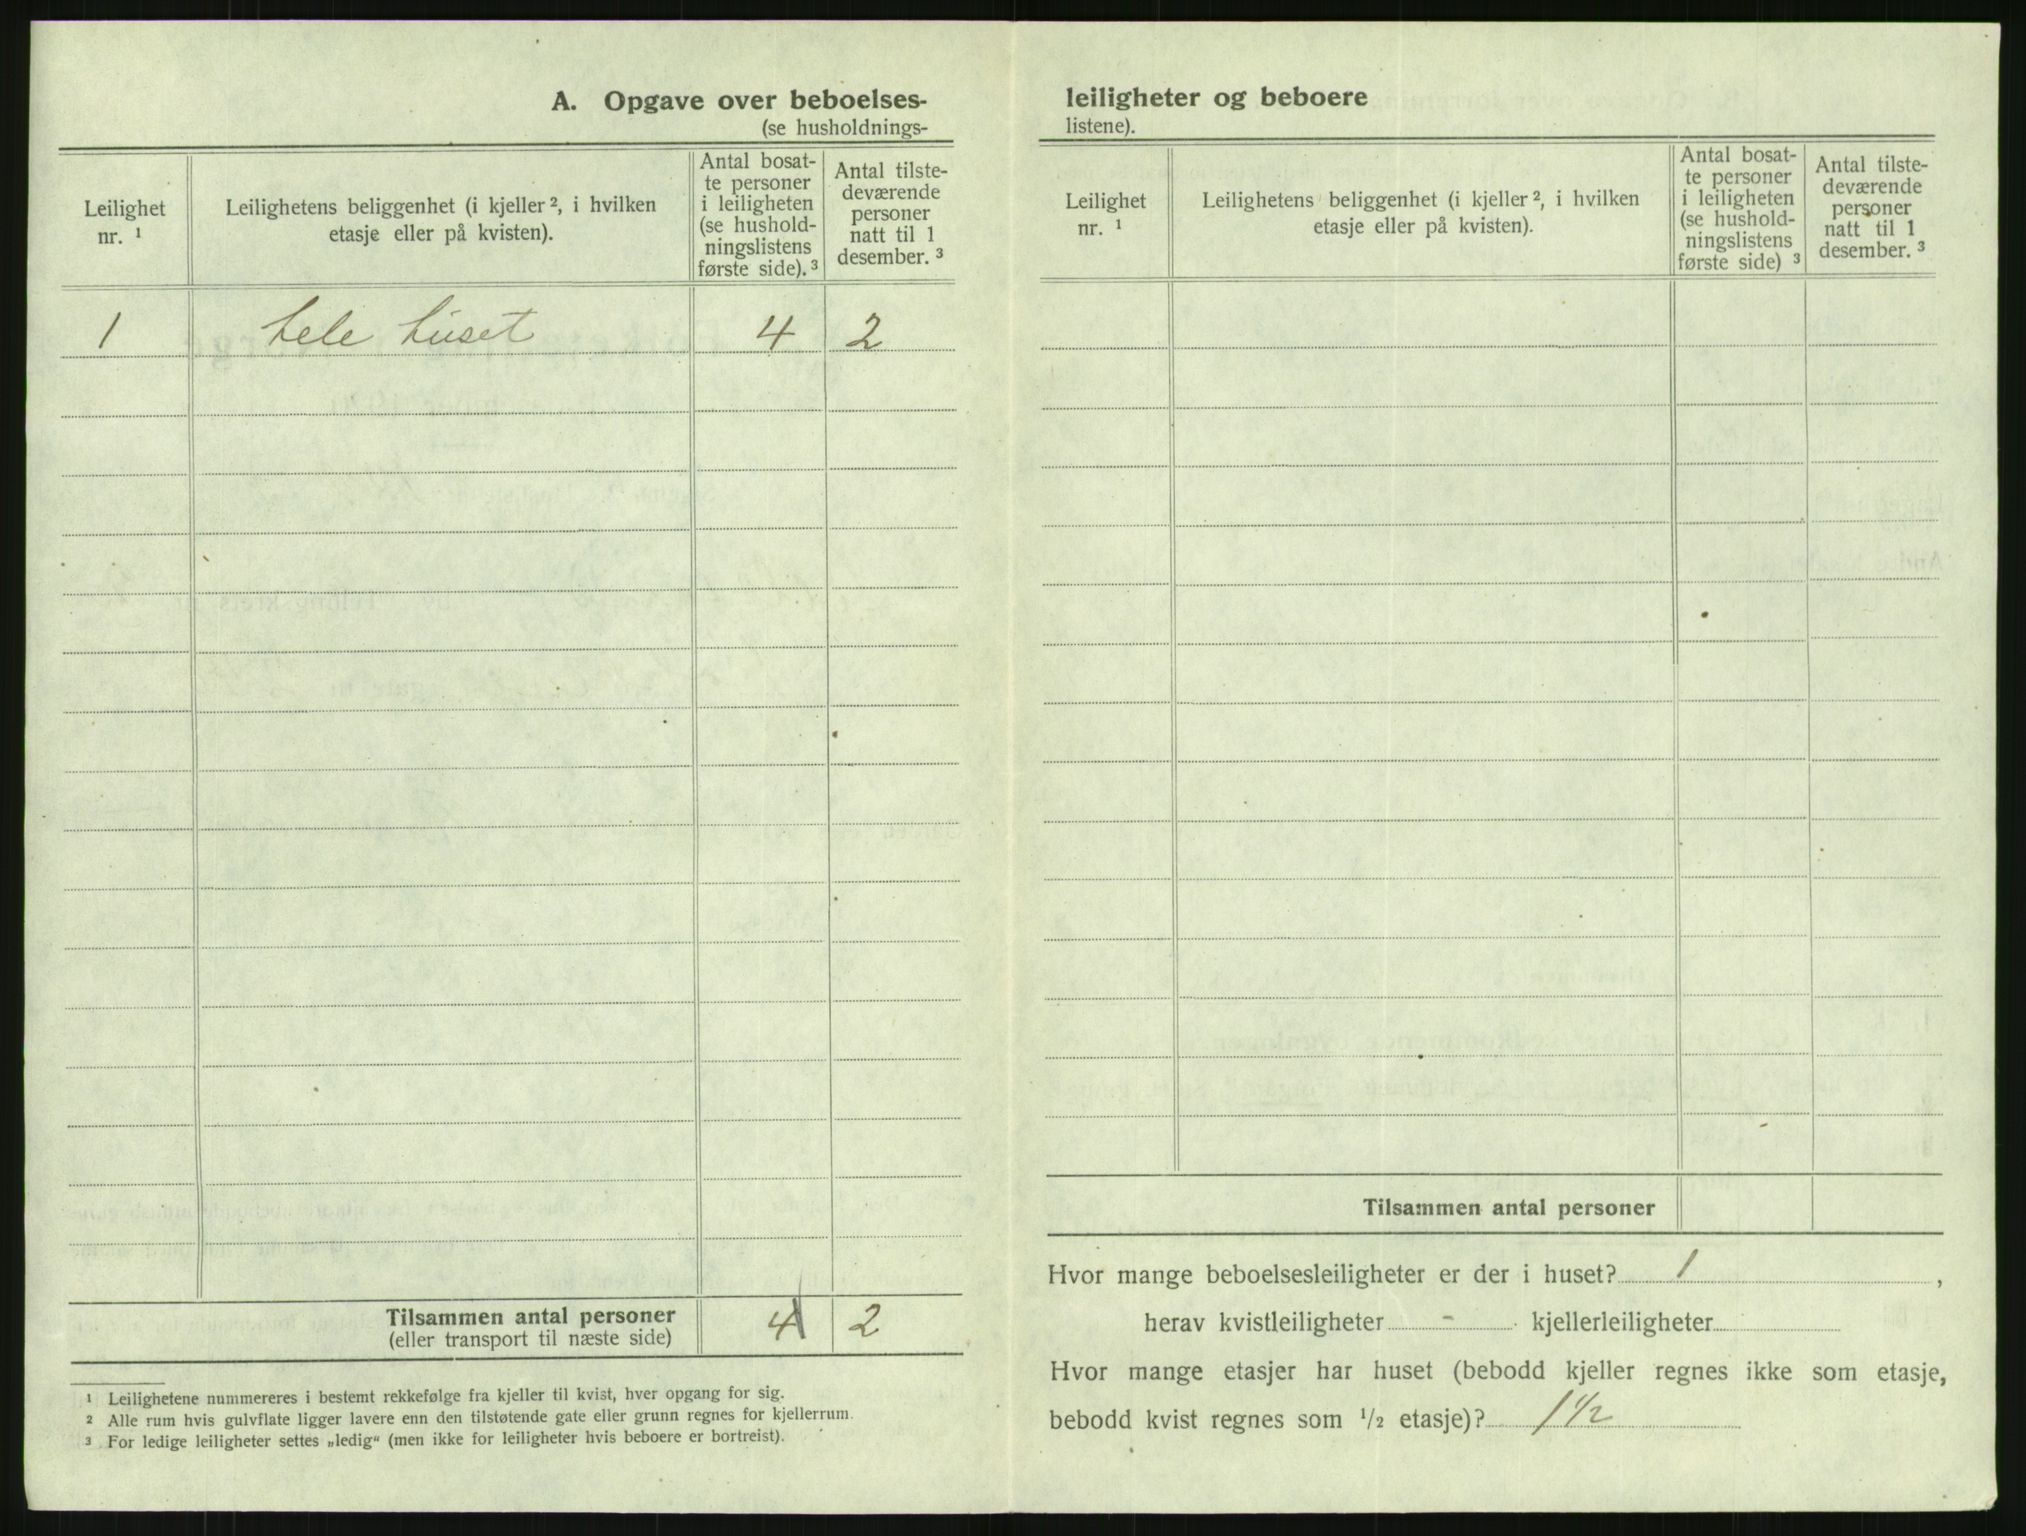 A. Opgave over beboelses-
(se husholdnings-
Leilighet
nr. ¹
Leilighetens beliggenhet (i kjeller ², i hvilken
etasje eller på kvisten).
Antal bosat-
te personer
i leiligheten
(se hushold-
ningslistens
første side). ³
Antal tilste-
deværende
personer
natt til 1
desember. ³
1 hele huset 4 2
Tilsammen antal personer 4 2
(eller transport til næste side)
¹ Leilighetene nummereres i bestemt rekkefølge fra kjeller til kvist, hver opgang for sig.
² Alle rum hvis gulvflate ligger lavere enn den tilstøtende gate eller grunn regnes for kjellerrum.
³ For ledige leiligheter settes „ledig“ (men ikke for leiligheter hvis beboere er bortreist).
leiligheter og beboere
listene).
Leilighet
nr. ¹
Leilighetens beliggenhet (i kjeller ², i hvilken
etasje eller på kvisten).
Antal bosat-
te personer
i leiligheten
(se hushold-
ningslistens
første side) ³
Antal tilste-
deværende
personer
natt til 1
desember. ³
Tilsammen antal personer
Hvor mange beboelsesleiligheter er der i huset? 1 ,
herav kvistleiligheter - kjellerleiligheter
Hvor mange etasjer har huset (bebodd kjeller regnes ikke som etasje,
bebodd kvist regnes som ½ etasje)? 1½